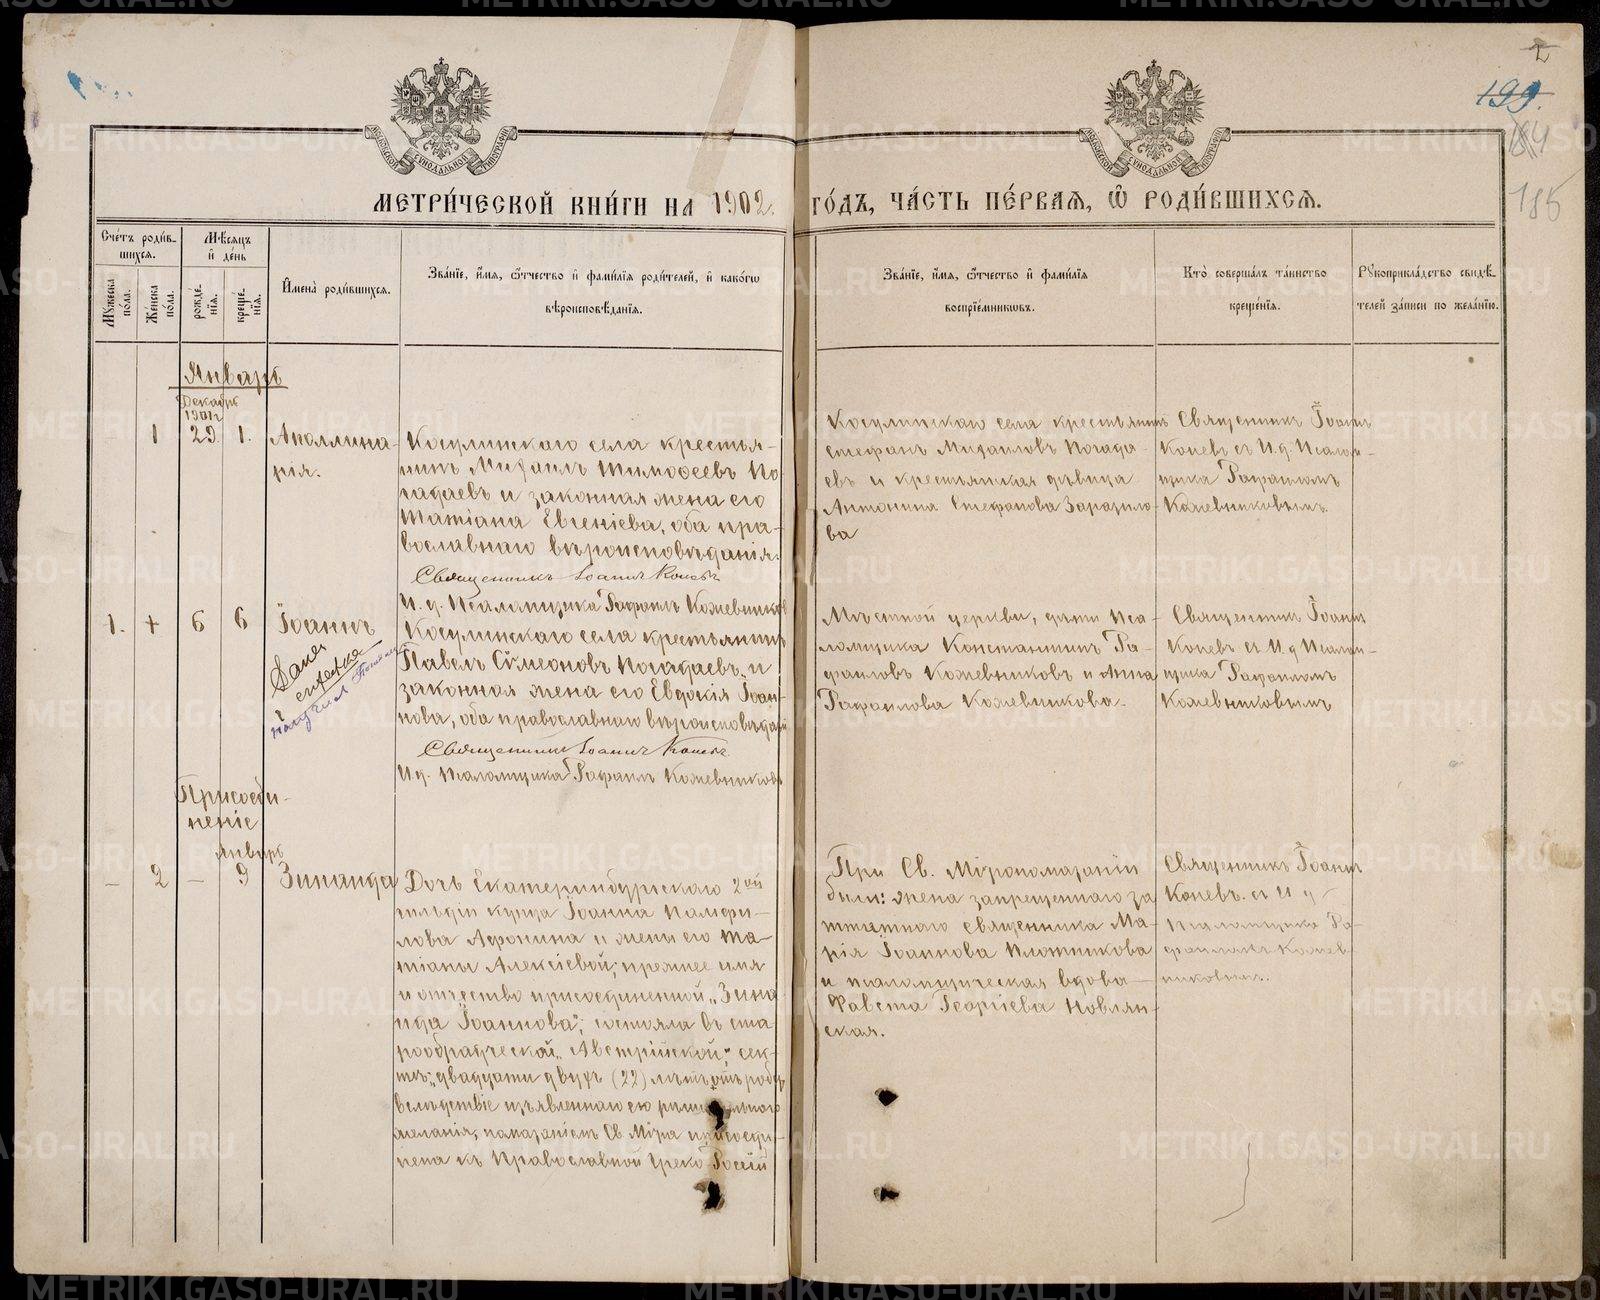 METRIKI.GASO-URAL.RU
2
199.
184
185
МОСКОВСКОЙ СѴНОДАЛЬНОЙ ТИПОГРАФІИ
МОСКОВСКОЙ СѴНОДАЛЬНОЙ ТИПОГРАФІИ
МЕТРИ́ЧЕСКОЙ КНИ́ГИ НА 1902. ГО́ДЪ, ЧА́СТЬ ПЕ́РВАѦ, Ѡ҆ РОДИ́ВШИХСѦ.
Сче́тъ роди́в-
шихся.
Мѣ́сяцъ
и҆ де́нь
Мꙋжеска по́ла.
Же́нска по́ла.
рожде́-
нїя.
креще́-
нїя.
И҆мена̀ роди́вшихся.
Зва́нїе, и҆́мя, ѻ҆́тчество и҆ фами́лїя роди́телей, и҆ како́гѡ
вѣроисповѣ́данїя.
Зва́нїе, и҆́мя, ѻ҆́тчество и҆ фами́лїя
воспрїе́мниковъ.
Кто̀ соверша́лъ та́инство
креще́нїя.
Рꙋкоприкла́дство свидѣ́-
телей за́писи по жела́нїю.
Январь
Декабрь
1901 г
- 1 29 1. Аполлина-
рія.
Косулинскаго села крестья-
нинъ Михаилъ Тимофеевъ По
гадаевъ и законная жена его
Татіана Евгеніева, оба пра-
вославнаго вѣроисповѣданія.
Священникъ Іоаннъ Коневъ
И. д. Псаломщика Рафаилъ Кожевниковъ
Косулинскаго села крестьянинъ
Стефанъ Михаиловъ Погада-
евъ и крестьянская дѣвица
Антонина Стефанова
ва
Священникъ Іоаннъ
Коневъ съ И. д. Псалом-
щика Рафаиломъ
Кожевниковымъ.
1. + 6 6 Іоаннъ
Дана
справка
Косулинскаго села крестьянинъ
Павелъ Сѵмеоновъ Погадаевъ и
законная жена его Евдокія Іоан-
нова, оба православнаго вѣроисповѣданія
Священникъ Іоаннъ Коневъ
И. д. Псаломщика Рафаилъ Кожевниковъ
Мѣстной церкви, дѣти Пса-
ломщика Константинъ Ра-
фаиловъ Кожевниковъ и Анна
Рафаилова Кожевникова.
Священникъ Іоаннъ
Коневъ съ И. д. Псалом-
щика Рафаиломъ
Кожевниковымъ
Присоеди-
неніе
январь
- 2 - 9 Зинаида
Дочь Екатеринбургскаго 2ой
гильдіи купца Іоанна Памфи-
лова Афонина и жены его Та-
тіаны Алексіевой; прежнее имя
и отчество присоединенной „Зина
ида Іоаннова“; состояла въ ста
рообрядческой „Австрійской“ сек-
тѣ; двадцати двухъ (22) лѣтъ отъ роду
вслѣдствіе изъявленнаго ею рѣшительнаго
желанія, помазаніемъ Св. Мѵра присоеди-
нена къ Православной Греко Россій
При Св. Мѵропомазаніи
были: жена запрещеннаго за
штатнаго священника Ма-
рія Іоаннова Плотникова
и псаломщическая вдова
Фавста Георгіева Новлян-
ская.
Священникъ Іоаннъ
Коневъ. съ И д
Псаломщика Ра-
фаиломъ Кожев-
никовымъ.